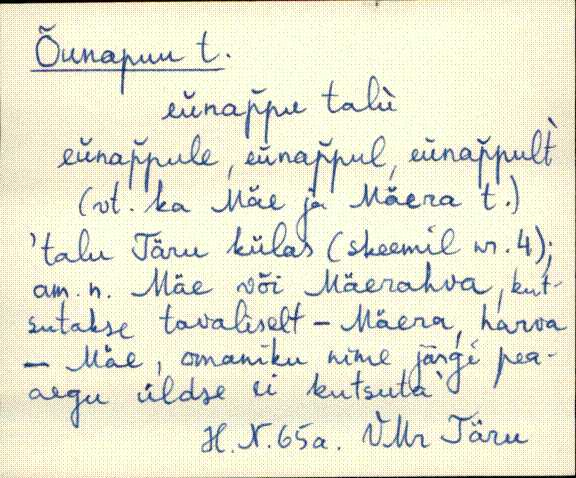 Õunapuu t.
eŭnap̆pu talù
eŭnap̆pule, eŭnap̆pul, eŭnap̆pult̀
(vt. ka Mäe ja Mäera t.)
'talu Järu külas (skeemil nr. 4);
am. n. Mäe või Mäerahva, kut-
sutakse tavaliselt – Mäera, harva
– Mäe, omaniku nime järgi pea-
aegu üldse ei kutsuta'
H. N. 65a. VMr Järu